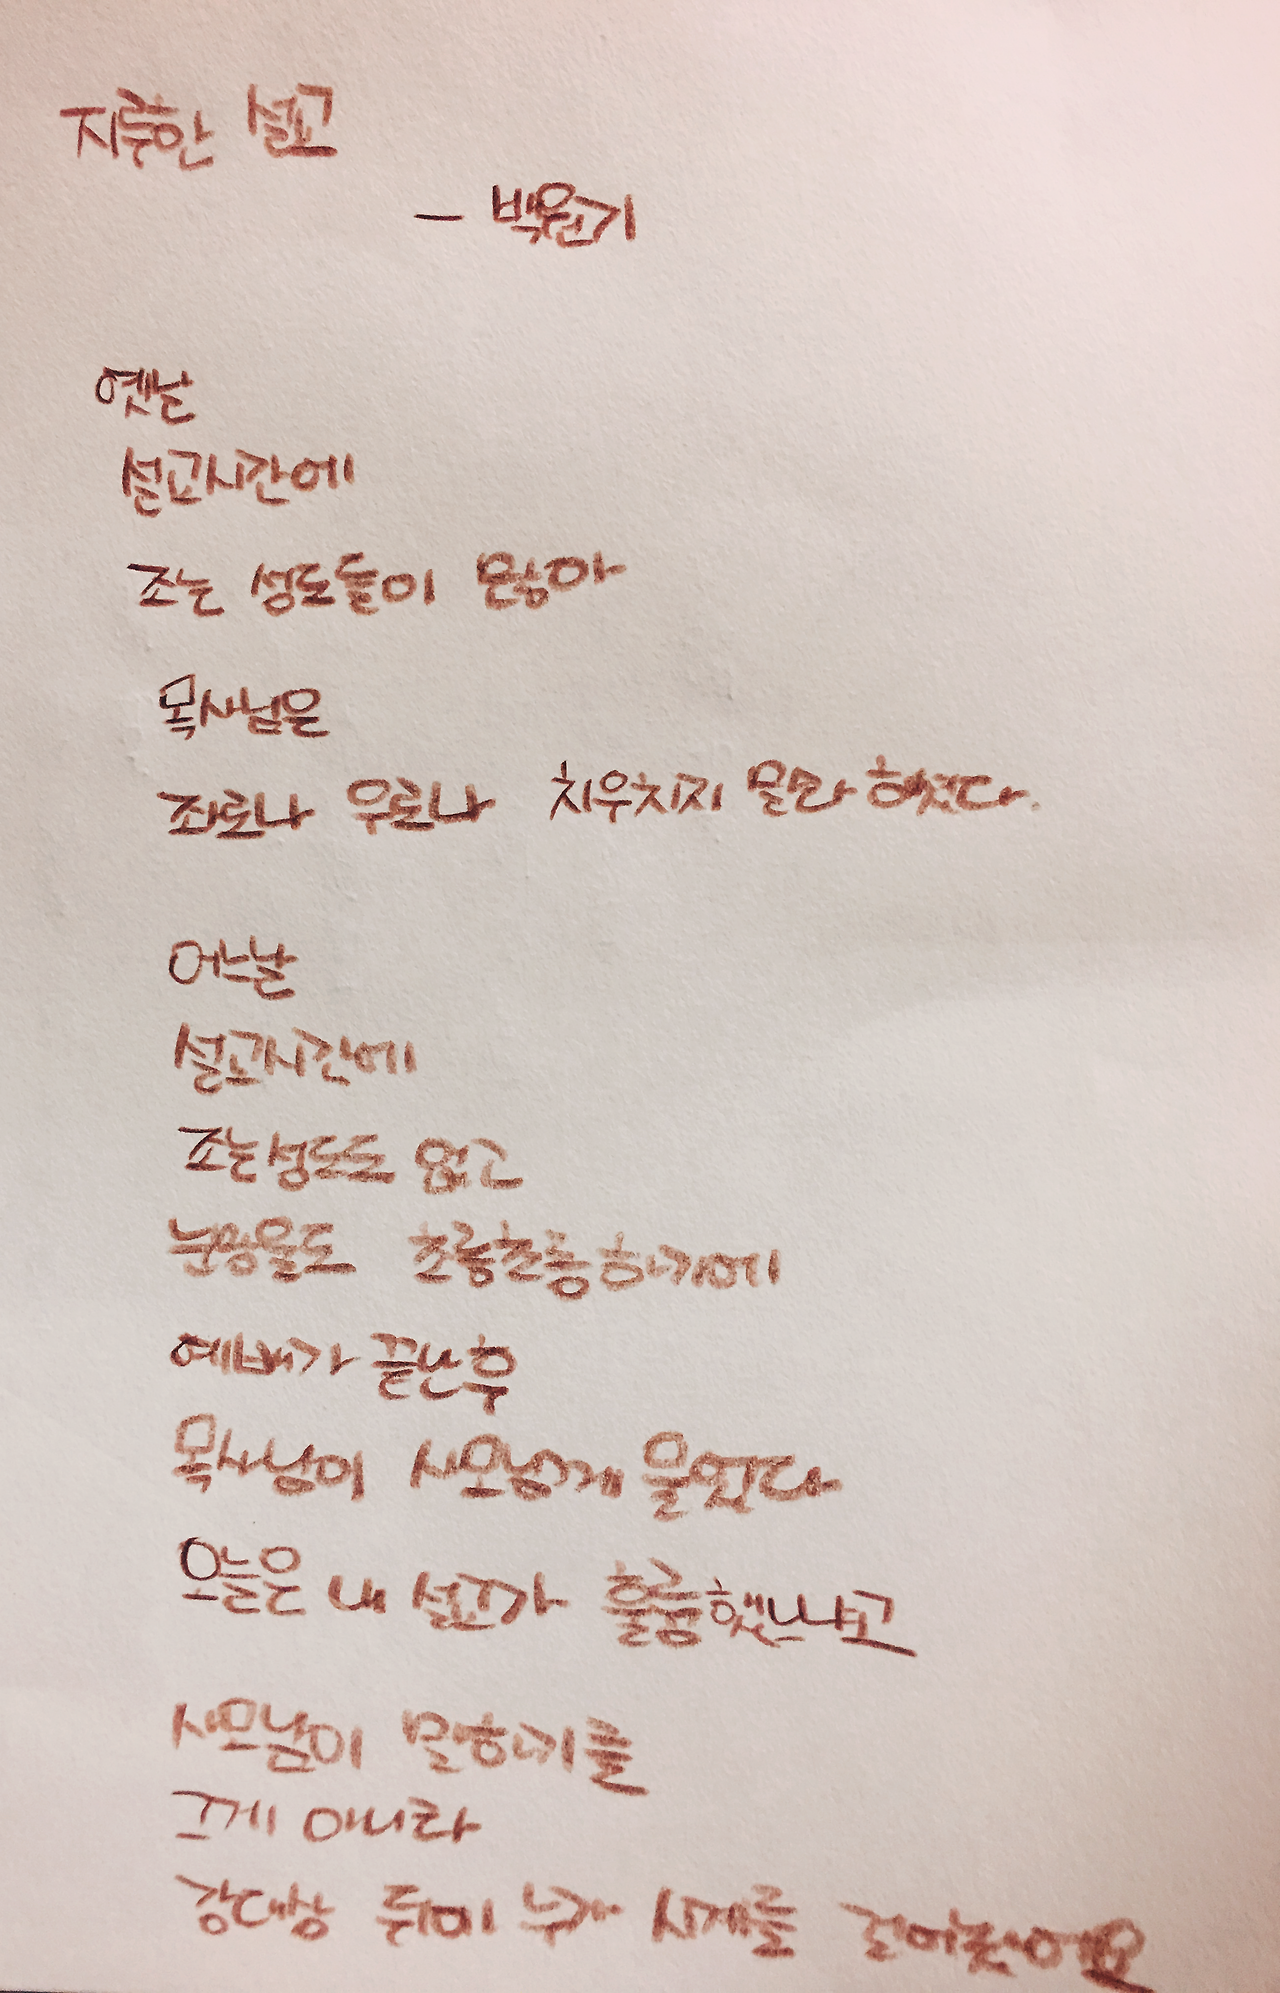 지루한 설교
- 백원기
옛날
설교시간에
조는 성도들이 많아
목사님은
좌로나 우로나 치우치지 말라 했다.
어느날
설교시간에
조는성도도 없고
눈망울도 초롱초롱하기에
예배가 끝난후
목사님이 사모님께 물었다
오늘은 내 설교가 훌륭했느냐고
사모님이 말하기를
그게 아니라
강대상 뒤에 누가 시계를 걸어놨어요